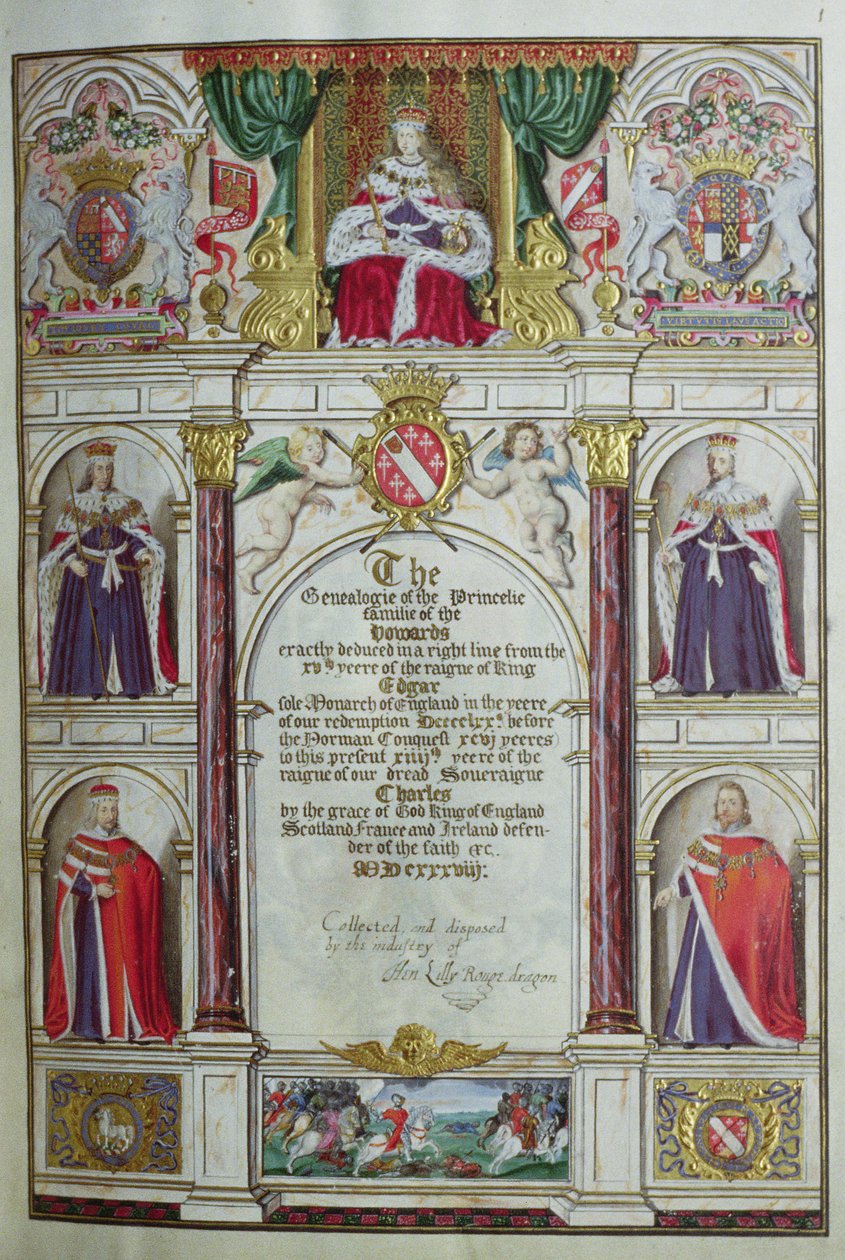 1
VIRTVTIS LAVS ACTIO
The
Genealogie of the Princelie
familie of the
Howards
exactly deduced in a right line from the
xvth yeere of the raigne of King
Edgar
sole Monarch of England in the yeere
of our redemption DccccLxxo. before
the Norman Conquest xcvj yeeres)
to this present xiiijth yeere of the
raigne of our dread Soueraigne
Charles
by the grace of God King of England
Scotland France and Ireland defen-
der of the faith &c..
MDCXXXViij:
Collected, and disposed
by the industry of
Hen Lilly Rouge dragon